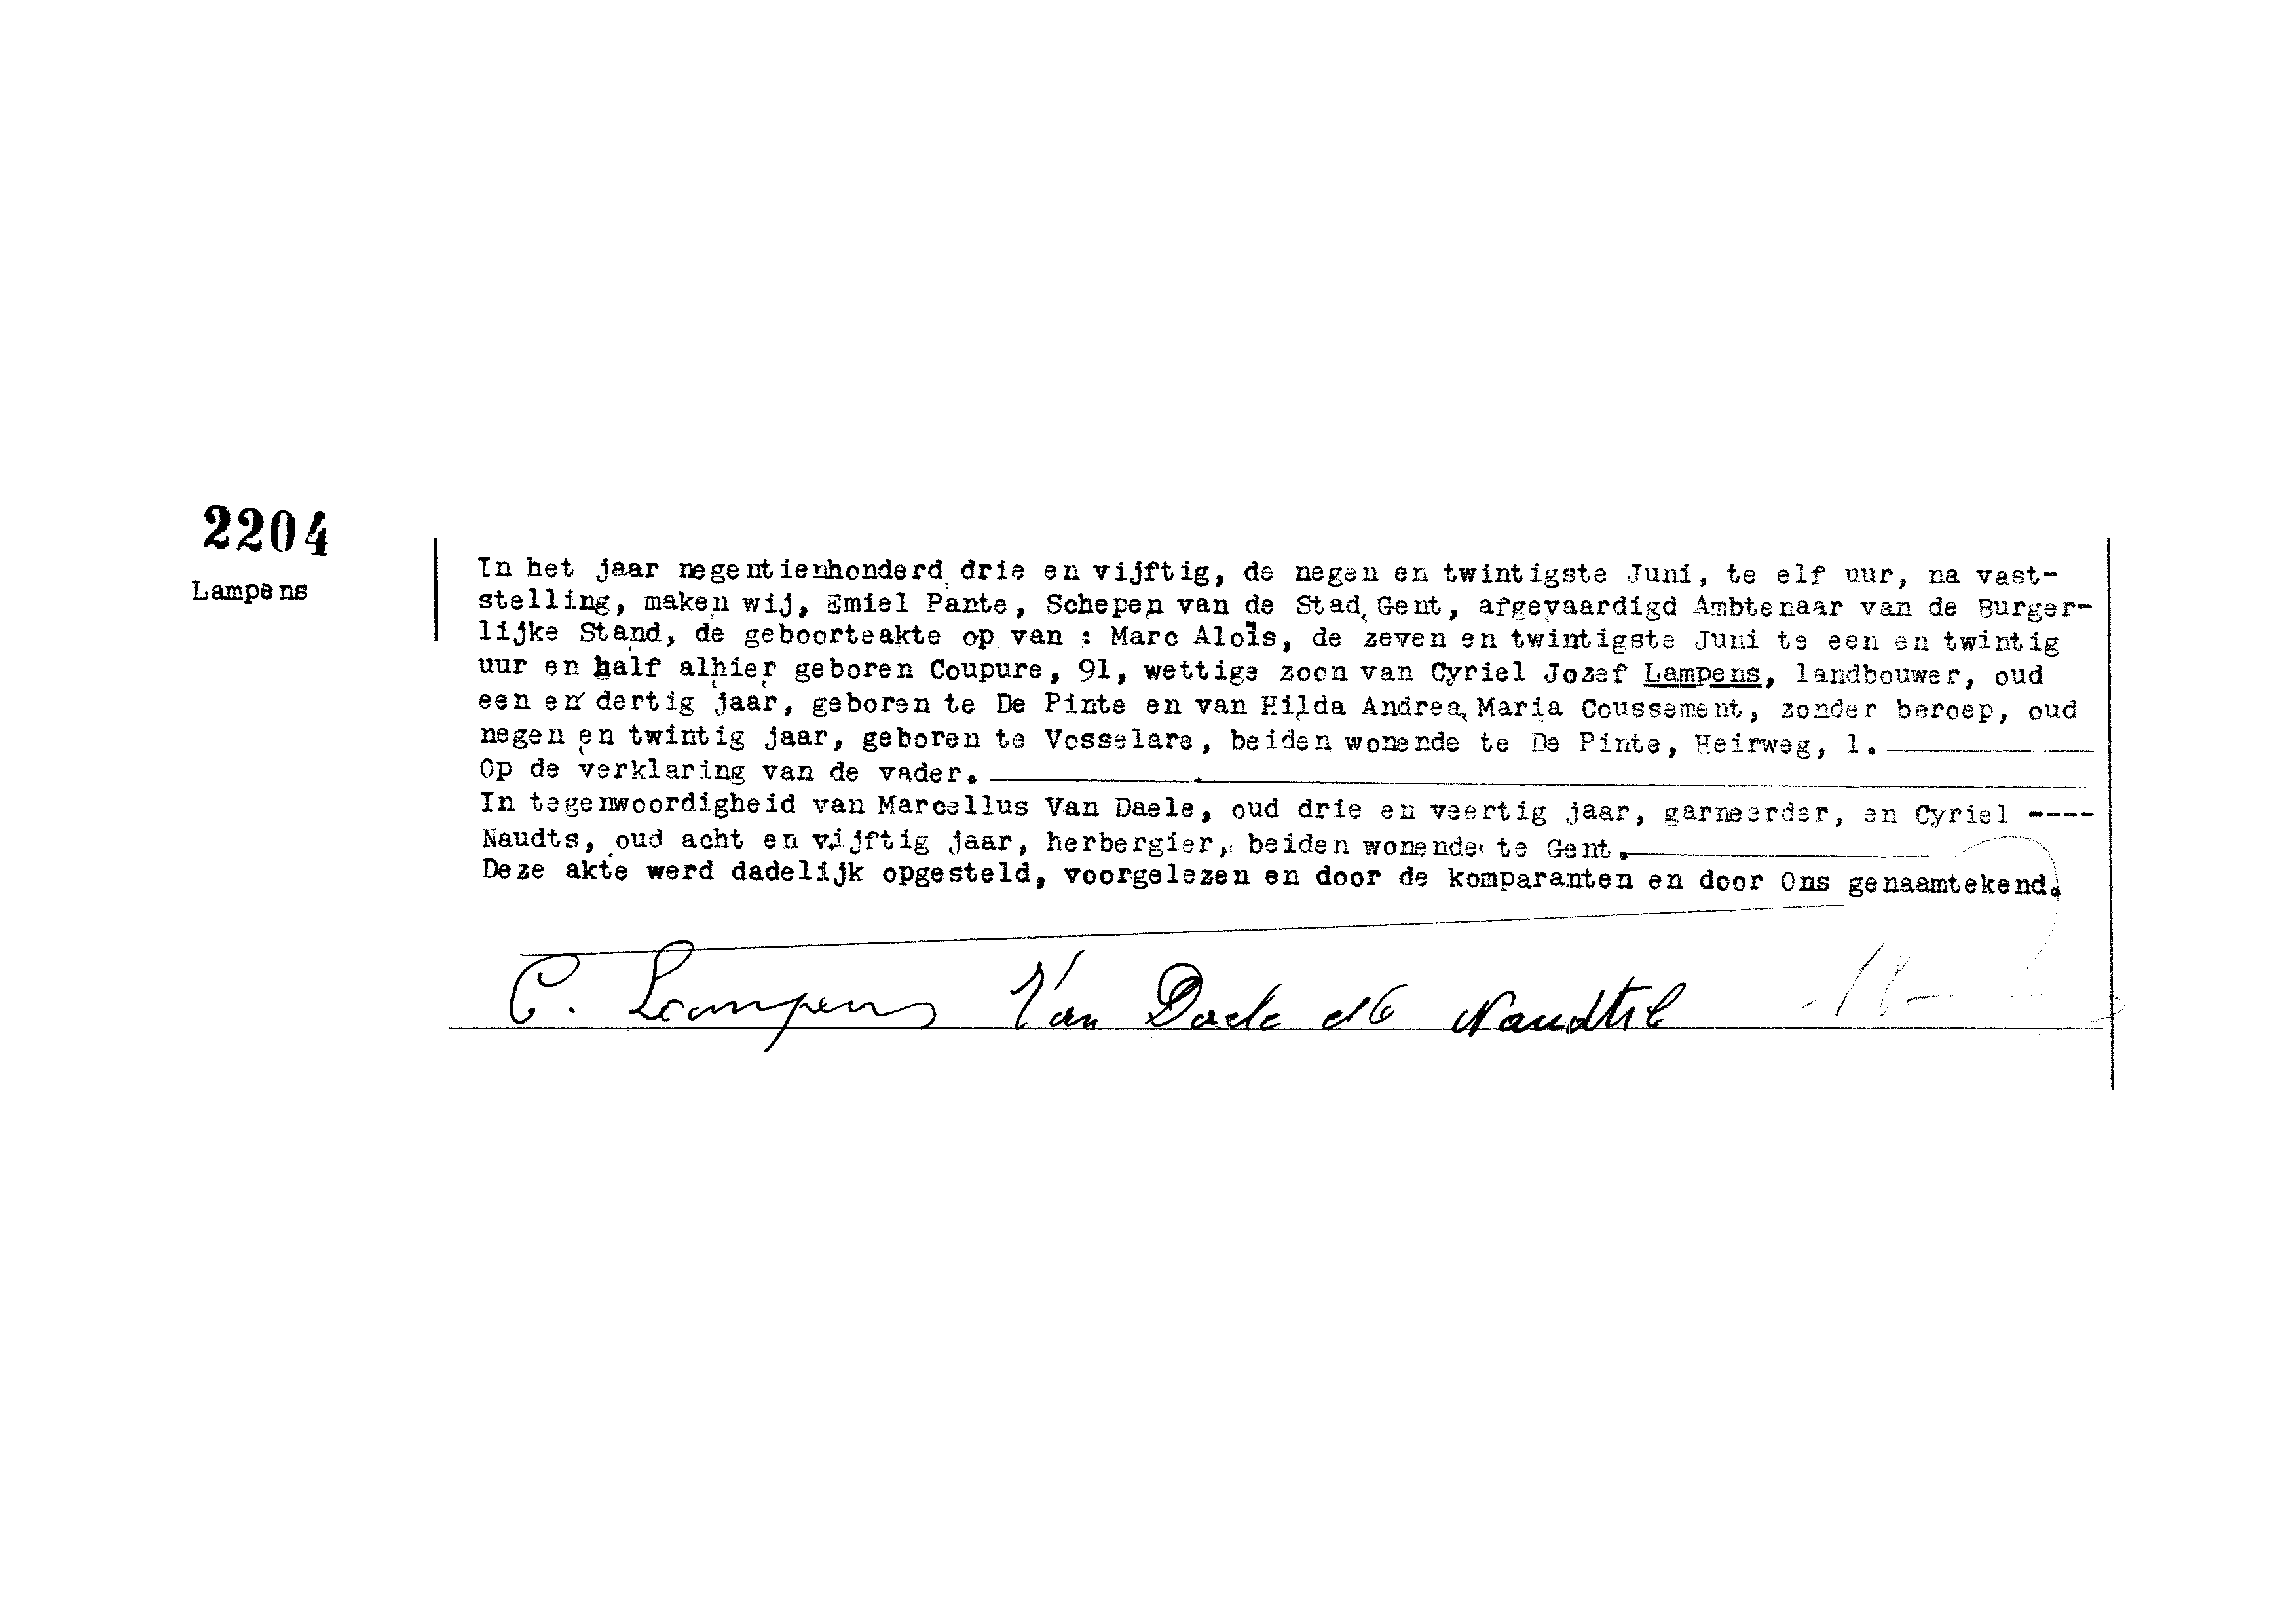 2204
Lampens
In het jaar negentienhonderd drie en vijftig, de negen en twintigste Juni, te elf uur, na vast-
stelling, maken wij, Emiel Pante, Schepen van de Stad Gent, afgevaardigd Ambtenaar van de Burger-
lijke Stand, de geboorteakte op van : Marc Aloïs, de zeven en twintigste Juni te een en twintig
uur en half alhier geboren Coupure, 91, wettige zoon van Cyriel Jozef Lampens, landbouwer, oud
een en dertig jaar, geboren te De Pinte en van Hilda Andrea Maria Coussement, zonder beroep, oud
negen en twintig jaar, geboren te Vosselare, beiden wonende te De Pinte, Heirweg, 1.
Op de verklaring van de vader.
In tegenwoordigheid van Marcellus Van Daele, oud drie en veertig jaar, garneerder, en Cyriel ----
Naudts, oud acht en vijftig jaar, herbergier, beiden wonende te Gent.
Deze akte werd dadelijk opgesteld, voorgelezen en door de komparanten en door Ons genaamtekend.
C. Lampens Van Daele